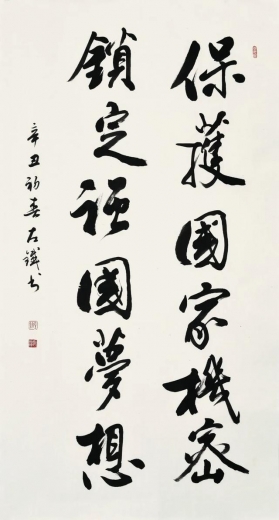 保護國家機密
鎖定強國夢想
辛丑初春左鐵书